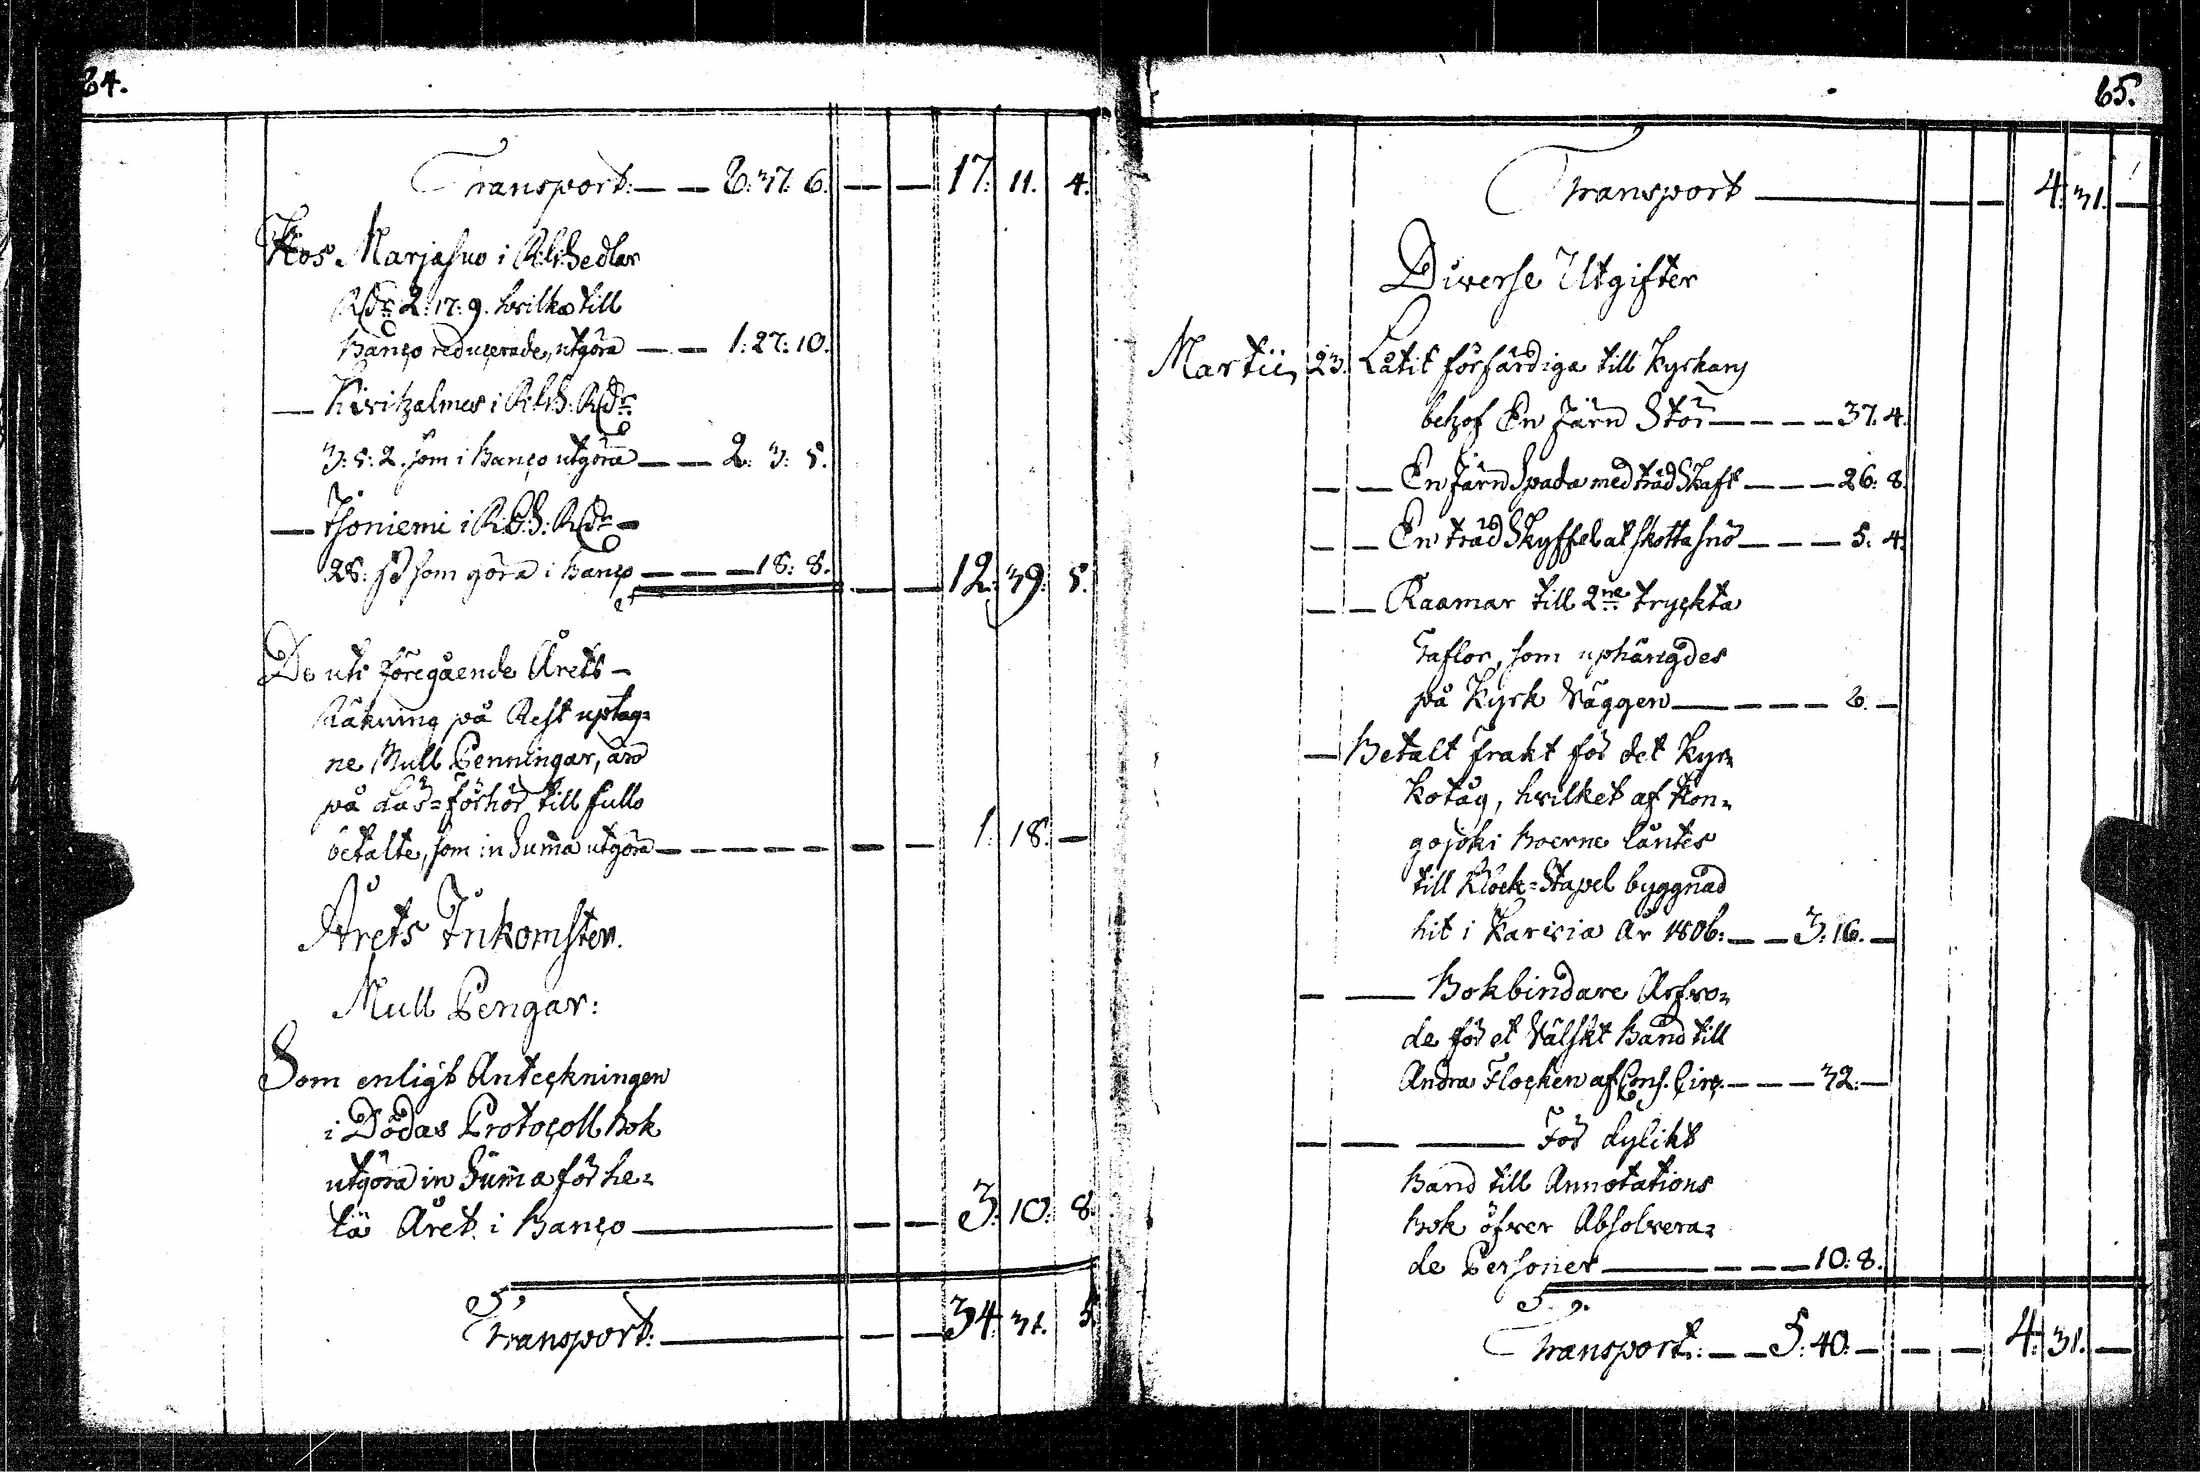 64.
Transport: — — 8: 37: 6. — — 17: 11. 4.
Hos Marjasuo i R.G:Sedlar
Rdr 2: 17: 9. hvilka till
Banco reducerade, utgöra — — 1: 27: 10.
— Kivitzalmes i R.G.S. Rdr
3: 5: 2. som i Banco utgöra — — 2: 3: 5.
— Isoniemi i R.G.S: Rdr —
28: ß som göra i Banco — — — 18: 8. — — 12: 39: 5.
De uti föregående Årets —
Räkning på Rest uptag=
ne Mull Penningar, äro
på Läs=förhör till fullo
betalte, som in Summa utgöra — — — — — — — 1. 18. —
Årets Inkomster.
Mull Pengar:
Som enligt Anteckningen
i Dödas Protocoll Bok
utgöra in Summa för he=
la Året i Banco — — — 3: 10: 8.
Transport: — — — 34: 31. 5.
65.
Transport — — — 4: 31. —
Diverse Utgifter
Martii 23. Låtit förfärdiga till Kyrkans
behof En Järn Stör — — — — 37. 4.
— — En Järn Spada med träd Skaft — — — 26: 8.
— — En träd Skyffel at skotta snö — — — 5: 4.
— — Raamar till 2ne tryckta
Taflor, som uphängdes
på Kyrk Väggen — — — — 8. —
— Betalt frakt för det Kyr=
kotåg, hvilket af Kon=
gojoki Boerne låntes
till Klock=Stapel byggnad
hit i Karvia År 1806: — — 3: 16. —
— — Bokbindare Arfvo=
de för et Välskt Band till
Andra Flocken af Cons. Circ. — — — 32: —
— — — För dylikt
Band till Annotations
Bok öfver Absolvera=
de Personer — — — — 10: 8.
Transport: — — 5: 40: — — — 4: 31. —